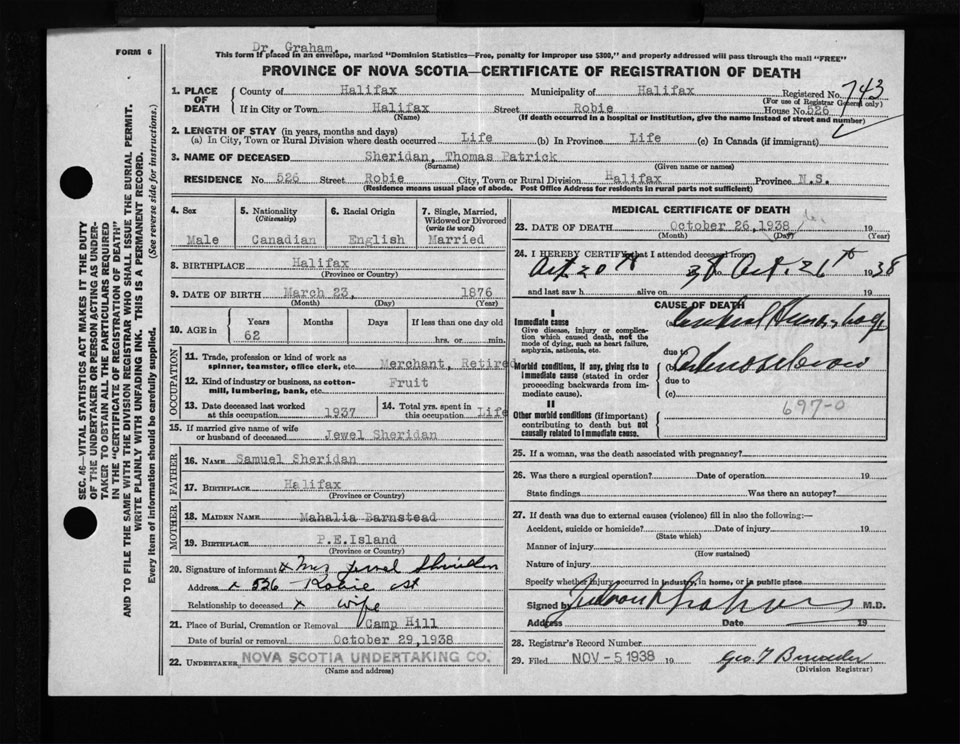 FORM 6
Dr. Graham.
This form if placed in an envelope, marked "Dominion Statistics—Free, penalty for improper use $300," and properly addressed will pass through the mail "FREE"
PROVINCE OF NOVA SCOTIA—CERTIFICATE OF REGISTRATION OF DEATH
1. PLACE OF DEATH
County of Halifax Municipality of Halifax Registered No. 743
(For use of Registrar General only)
If in City or Town Halifax Street Robie House No. 526
(Name) (If death occurred in a hospital or institution, give the name instead of street and number)
2. LENGTH OF STAY (in years, months and days)
(a) In City, Town or Rural Division where death occurred Life (b) In Province Life (c) In Canada (if immigrant)
3. NAME OF DECEASED Sheridan, Thomas Patrick
(Surname) (Given name or names)
RESIDENCE No. 526 Street Robie City, Town or Rural Division Halifax Province N.S.
(Residence means usual place of abode. Post Office Address for residents in rural parts not sufficient)
4. Sex Male
5. Nationality (Citizenship) Canadian
6. Racial Origin English
7. Single, Married, Widowed or Divorced (write the word) Married
8. BIRTHPLACE Halifax
(Province or Country)
9. DATE OF BIRTH March 23, 1876
(Month) (Day) (Year)
10. AGE in Years 62 Months Days If less than one day old hrs. or min.
OCCUPATION
11. Trade, profession or kind of work as spinner, teamster, office clerk, etc. Merchant, Retired
12. Kind of industry or business, as cotton-mill, lumbering, bank, etc. Fruit
13. Date deceased last worked at this occupation 1937
14. Total yrs. spent in this occupation Life
15. If married give name of wife or husband of deceased Jewel Sheridan
FATHER
16. NAME Samuel Sheridan
17. BIRTHPLACE Halifax
(Province or Country)
MOTHER
18. MAIDEN NAME Mahalia Barnstead
19. BIRTHPLACE P.E.Island
(Province or Country)
20. Signature of informant x Mrs Jewel Sheridan
Address x 526 Robie St
Relationship to deceased x wife
21. Place of Burial, Cremation or Removal Camp Hill
Date of burial or removal October 29,1938
22. UNDERTAKER NOVA SCOTIA UNDERTAKING CO.
(Name and address)
MEDICAL CERTIFICATE OF DEATH
23. DATE OF DEATH October 26,1938
(Month) (Day) (Year)
24. I HEREBY CERTIFY that I attended deceased from:
Oct 20th 38 to Oct. 26th 1938
and last saw h alive on 19
CAUSE OF DEATH
I
Immediate cause
Give disease, injury or complication which caused death, not the mode of dying, such as heart failure, asphyxia, asthenia, etc.
(a) Cerebral Hemorrhage
due to
(b) Arteriosclerosis
Morbid conditions, if any, giving rise to immediate cause (stated in order proceeding backwards from immediate cause).
due to
(c)
II
Other morbid conditions (if important) contributing to death but not causally related to immediate cause.
697-0
25. If a woman, was the death associated with pregnancy?
26. Was there a surgical operation? Date of operation 19
State findings Was there an autopsy?
27. If death was due to external causes (violence) fill in also the following:—
Accident, suicide or homicide? Date of injury 19
(State which)
Manner of injury
(How sustained)
Nature of injury
Specify whether injury occurred in industry, in home, or in public place
Signed by Graham M.D.
Address Date 19
28. Registrar's Record Number
29. Filed NOV -5 1938 19
(Division Registrar)
SEC. 46—VITAL STATISTICS ACT MAKES IT THE DUTY
OF THE UNDERTAKER OR PERSON ACTING AS UNDER-
TAKER TO OBTAIN ALL THE PARTICULARS REQUIRED
IN THE "CERTIFICATE OF REGISTRATION OF DEATH"
AND TO FILE THE SAME WITH THE DIVISION REGISTRAR WHO SHALL ISSUE THE BURIAL PERMIT.
WRITE PLAINLY WITH UNFADING INK. THIS IS A PERMANENT RECORD.
Every item of information should be carefully supplied. (See reverse side for instructions.)